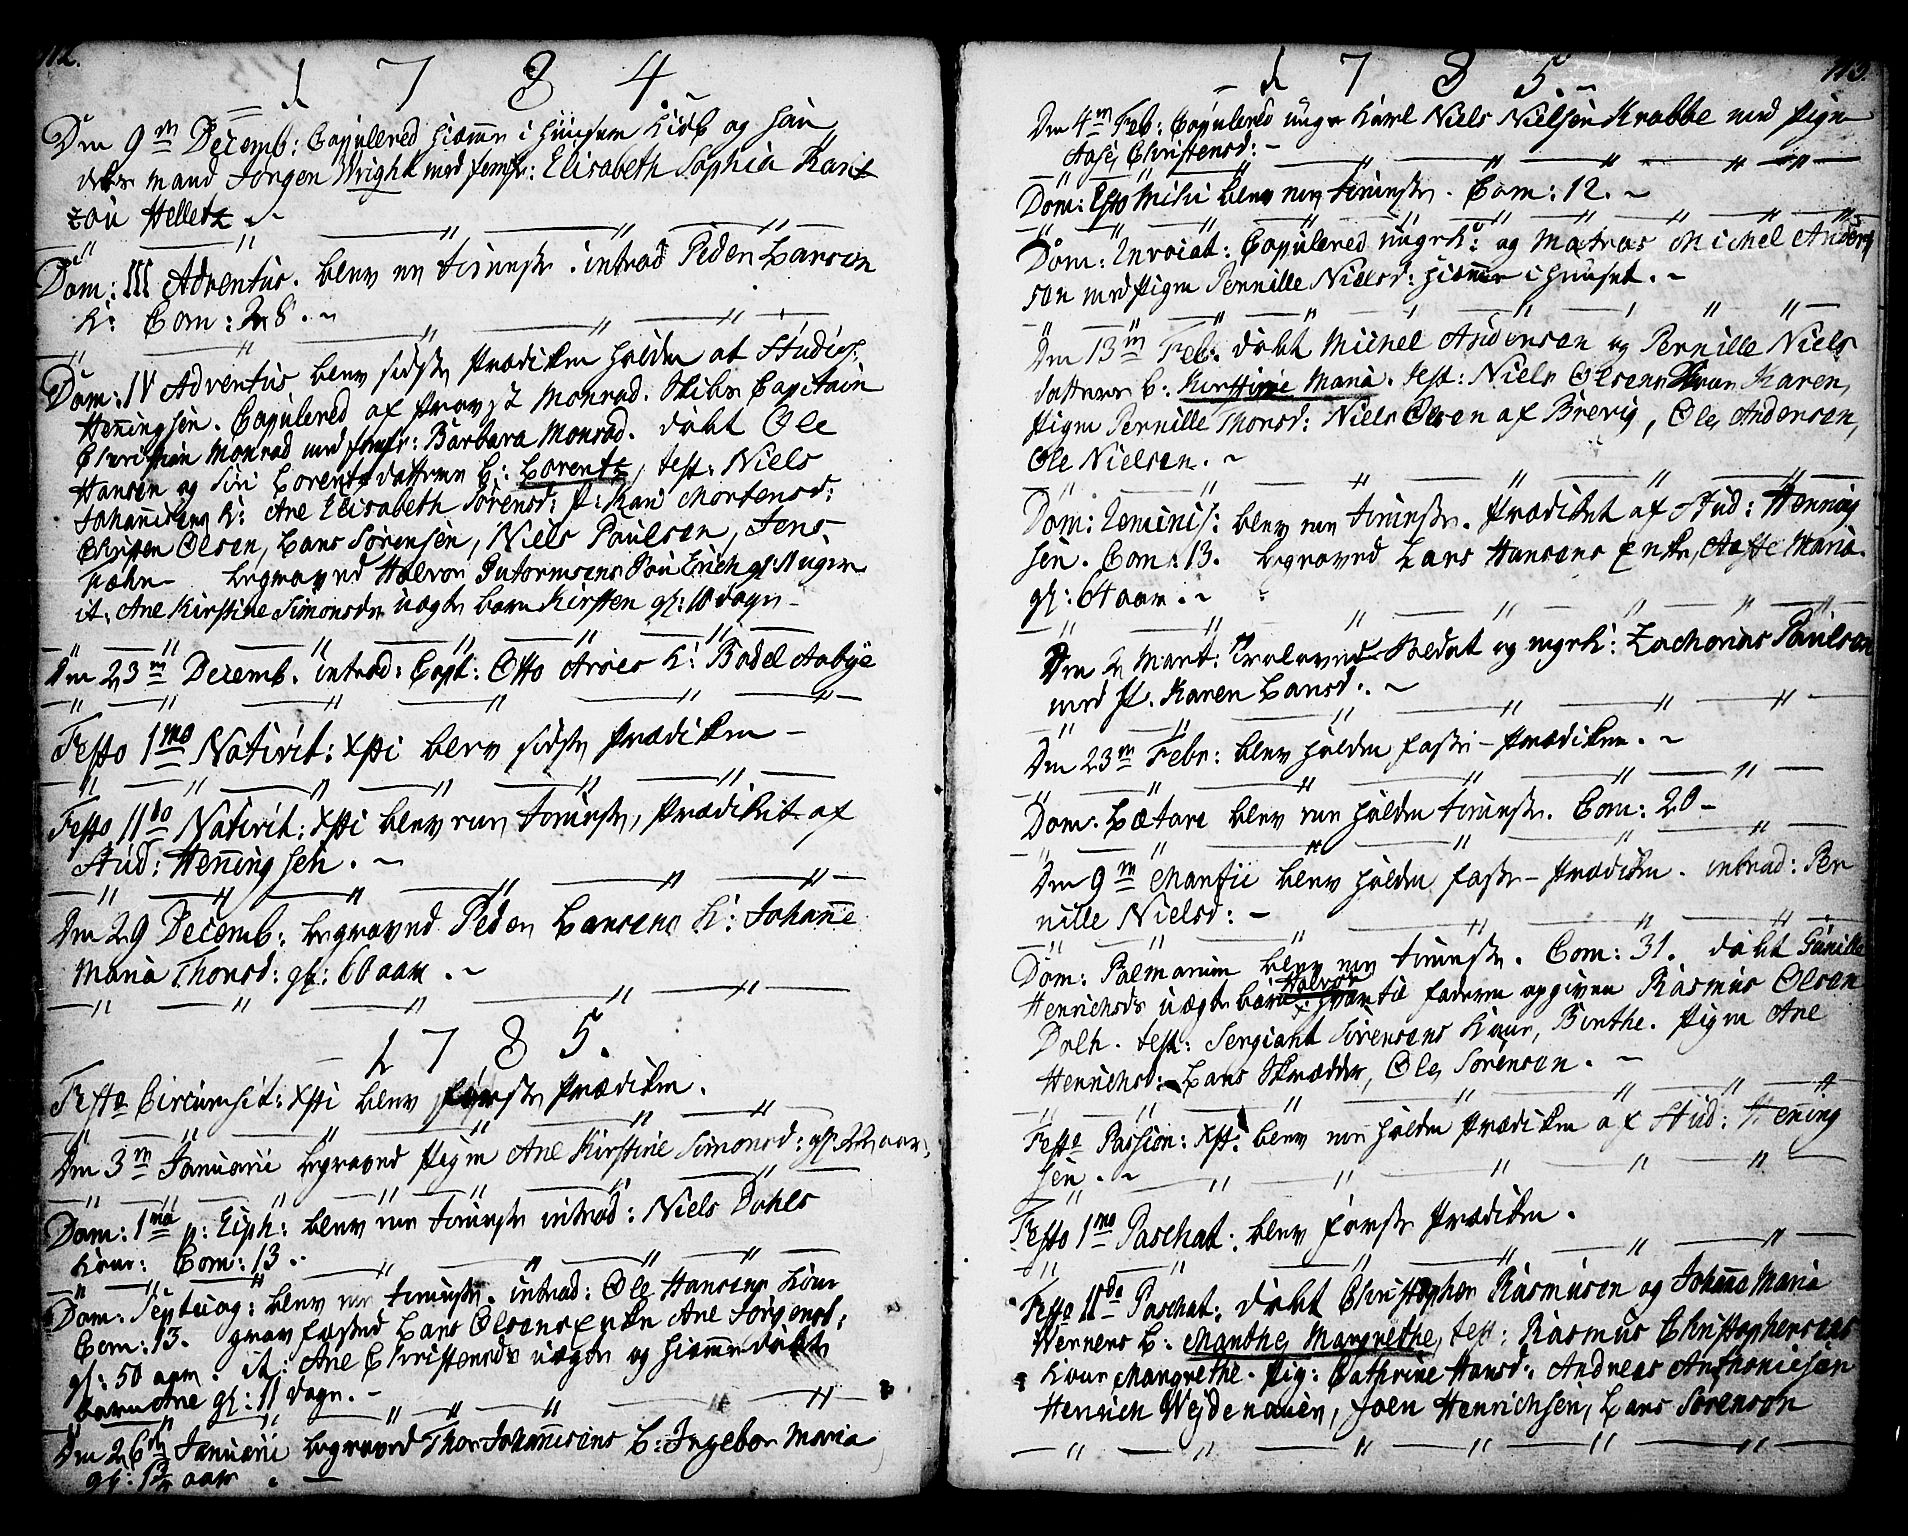 112.
1 7 8 4
Den 9de Decemb: Copulered hiemme i Huuset Kiøb og Han
dels Mand Jørgen Wright med Jomfr: Elisabeth Sophia Karit
zou Helletz .~
Dom: III Adventus. blev ingen tieneste. introd Peder Larsen
K: Com: 28 .~
Dom: IV Adventus blev sidste Prædiken holden af Studios:
Henningsen. Copulered af Provst Monrad. Skibs Capitain
Christian Monrad med Jomfr: Barbara Monrad. døbt Ole
Hansen og Siri Lorentzdatters b: Lorentz, test: Niels
Johannisens K: Ane Elisabeth Sørensd: P: Kari Mortensd:
Christen Olsen, Lars Sørensen, Niels Paulsen, Jens
Fæhn- begraved Halvor Gutormsens Søn Erich gl: 4 uger
it: Ane Kirstine Simonsds uægte barn Kirsten gl: 10 dage -
Den 23de Decemb. introd: Capt: Otto Aröes K: Bodel Aabye
Festo 1mo Nativit: Xsti blev sidste Prædiken -
Festo 11do Nativit: Xsti blev een tieneste, Prædiket af
Stud: Henningsen .~
Den 29 Decemb: begraved Peder Larsens K: Johanne
Maria Thorsd: gl: 60 aar .~
1 7 8 5.
Festo Circumsit: Xsti blev første Prædiken.
Den 3de Januarii begraved Pigen Ane Kirstine Simonsd: gl: 22 aar.
Dom: 1ma p: Eiph: blev een tieneste introd: Niels Dahls
Kone: Com: 13 .
Dom: Septuag: blev een tieneste. introd: Ole Hansens Kone
Com: 13. gravfæsted Lars Olsens Enke Ane Jørgensd:
gl: 50 aar. it: Ane Christensds uægte og hiemmedøbte
barn Ane gl: 11 dage. -
Den 26de Januarii begraved Thor Johannisens b: Ingebor Maria
gl: 1½ aar . -
113.
1 7 8 5.
Den 4de Feb: Copulered unge Karl Niels Nielsen Krabbe med Pigen
Aase Christensd: -
Dom: Esto Mihi blev een tieneste. Com: 12. ~
Dom: Invocat: Copulered ungek: og Matros Michel Anders
sen med Pigen Pernille Nielsd: hiemme i Huuset . ~
Den 13de Feb. døbt Michel Andersen og Pernille Niels
datters b: Kirstine Maria. test: Niels Olsens Kone Karen,
Pigen Pernille Thorsd: Niels Olsen af Brevig, Ole Andersen,
Ole Nielsen. ~
Dom: Reminis: blev een tieneste. Prædiket af Stud: Henning
sen. Com: 13. begraved Lars Hansens Enke, Aaste Maria.
gl: 64 aar .~
Den 2 Mart: Trolovede Soldat og ungk: Zacharias Paulsen
med P. Karen Larsd: . ~
Den 23de Febr: blev holden faste-Prædiken. ~
Dom. Lætare blev een holden tieneste. Com: 20 -
Den 9de Martii blev holden faste-Prædiken. introd: Per
nille Nielsd: -
Dom: Palmarum blev een tieneste. Com: 31. døbt Gunilla
Henrichsds uægte barn: Halvor hvortil faderen opgiven Rasmus Olsen
Dalh. test: Sergiant Sørensens Kone, Birthe. Pigen Ane
Henrichsd: Lars Skrædder, Ole Sørensen. ~
Festo Passion: Xsti: blev een holden Prædiken af Stud: Henning
sen .~
Festo 1mo Paschat: blev første Prædiken .
Festo 11do Paschat: døbt Christopher Rasmusen og Johanne Maria
Werners b: Marthe Margrethe, test: Rasmus Christophersens
Kone Margrethe. Pig: Cathrine Hansd: Andreas Anthonisen
Henrich Wejdenauer, Joen Henrichsen, Lars Sørensen